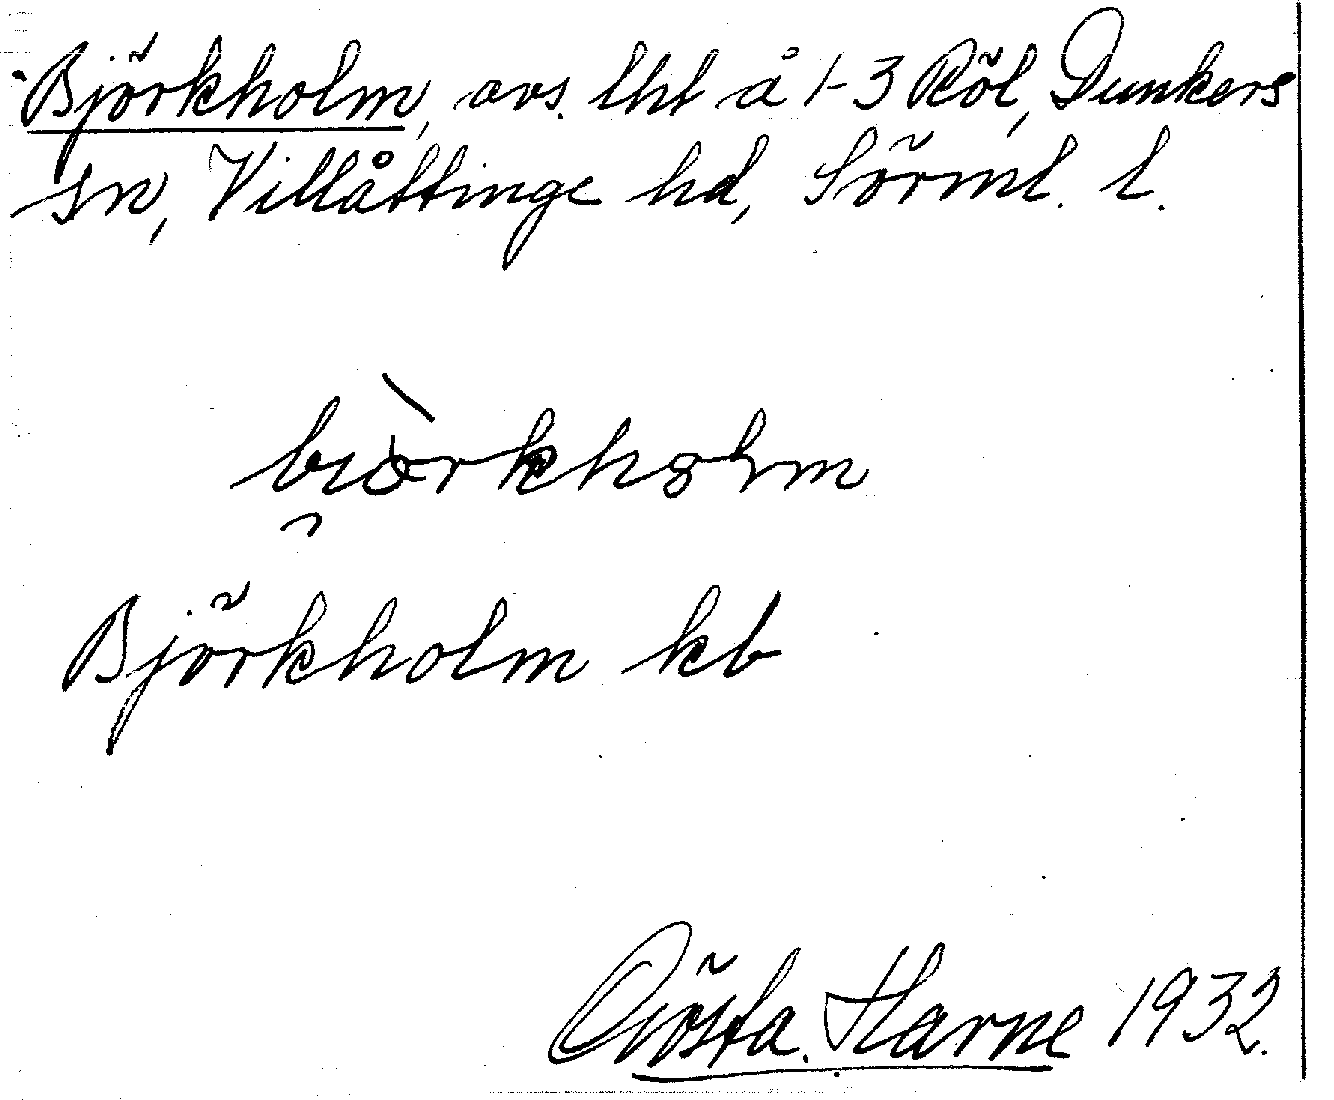 Björkholm, avs. lht å 1-3 Röl, Dunkers
sn, Villåttinge hd, Sörml. l.
bi̯òrkhoɫm
Björkholm kb
Gösta Harne 1932.